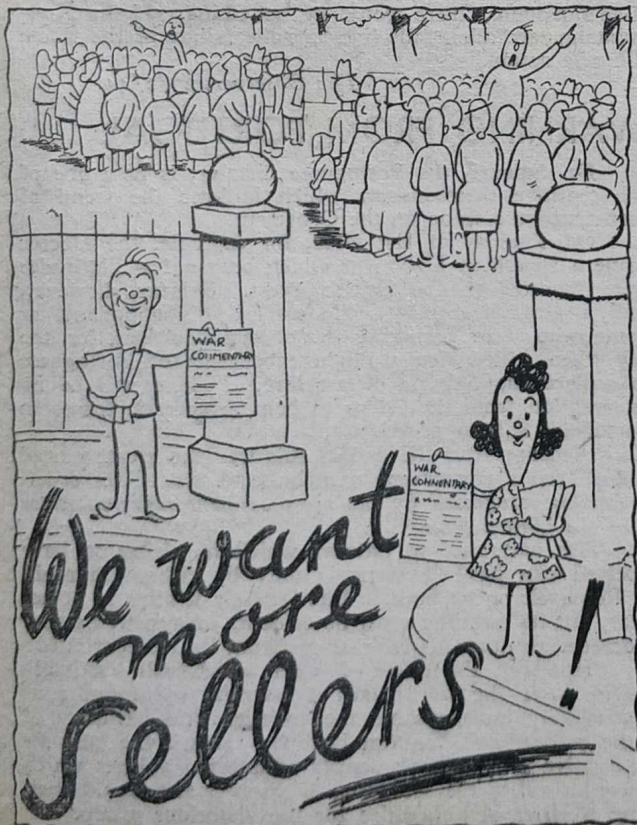 WAR
COMMENTARY
WAR
COMMENTARY
We want
more
Sellers!